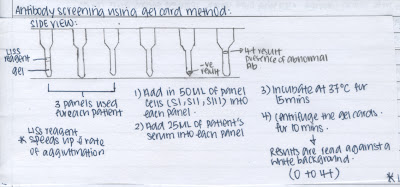 Antibody screening using gel card method:
SIDE VIEW:
LISS
reagent
gel
-ve
result
→4+ result
presence of abnormal
ab.
3 panels used
for each patient
LISS reagent
* speeds up rate
of agglutination
1) Add in 50UL of panel
cells (SI, SII, SIII) into
each panel.
2) Add 25UL of patient's
serum into each panel
3) Incubate at 37°C for
15mins
4) Centrifuge the gel cards
for 10mins.
Results are read against a
white background.
(0 to 4+)